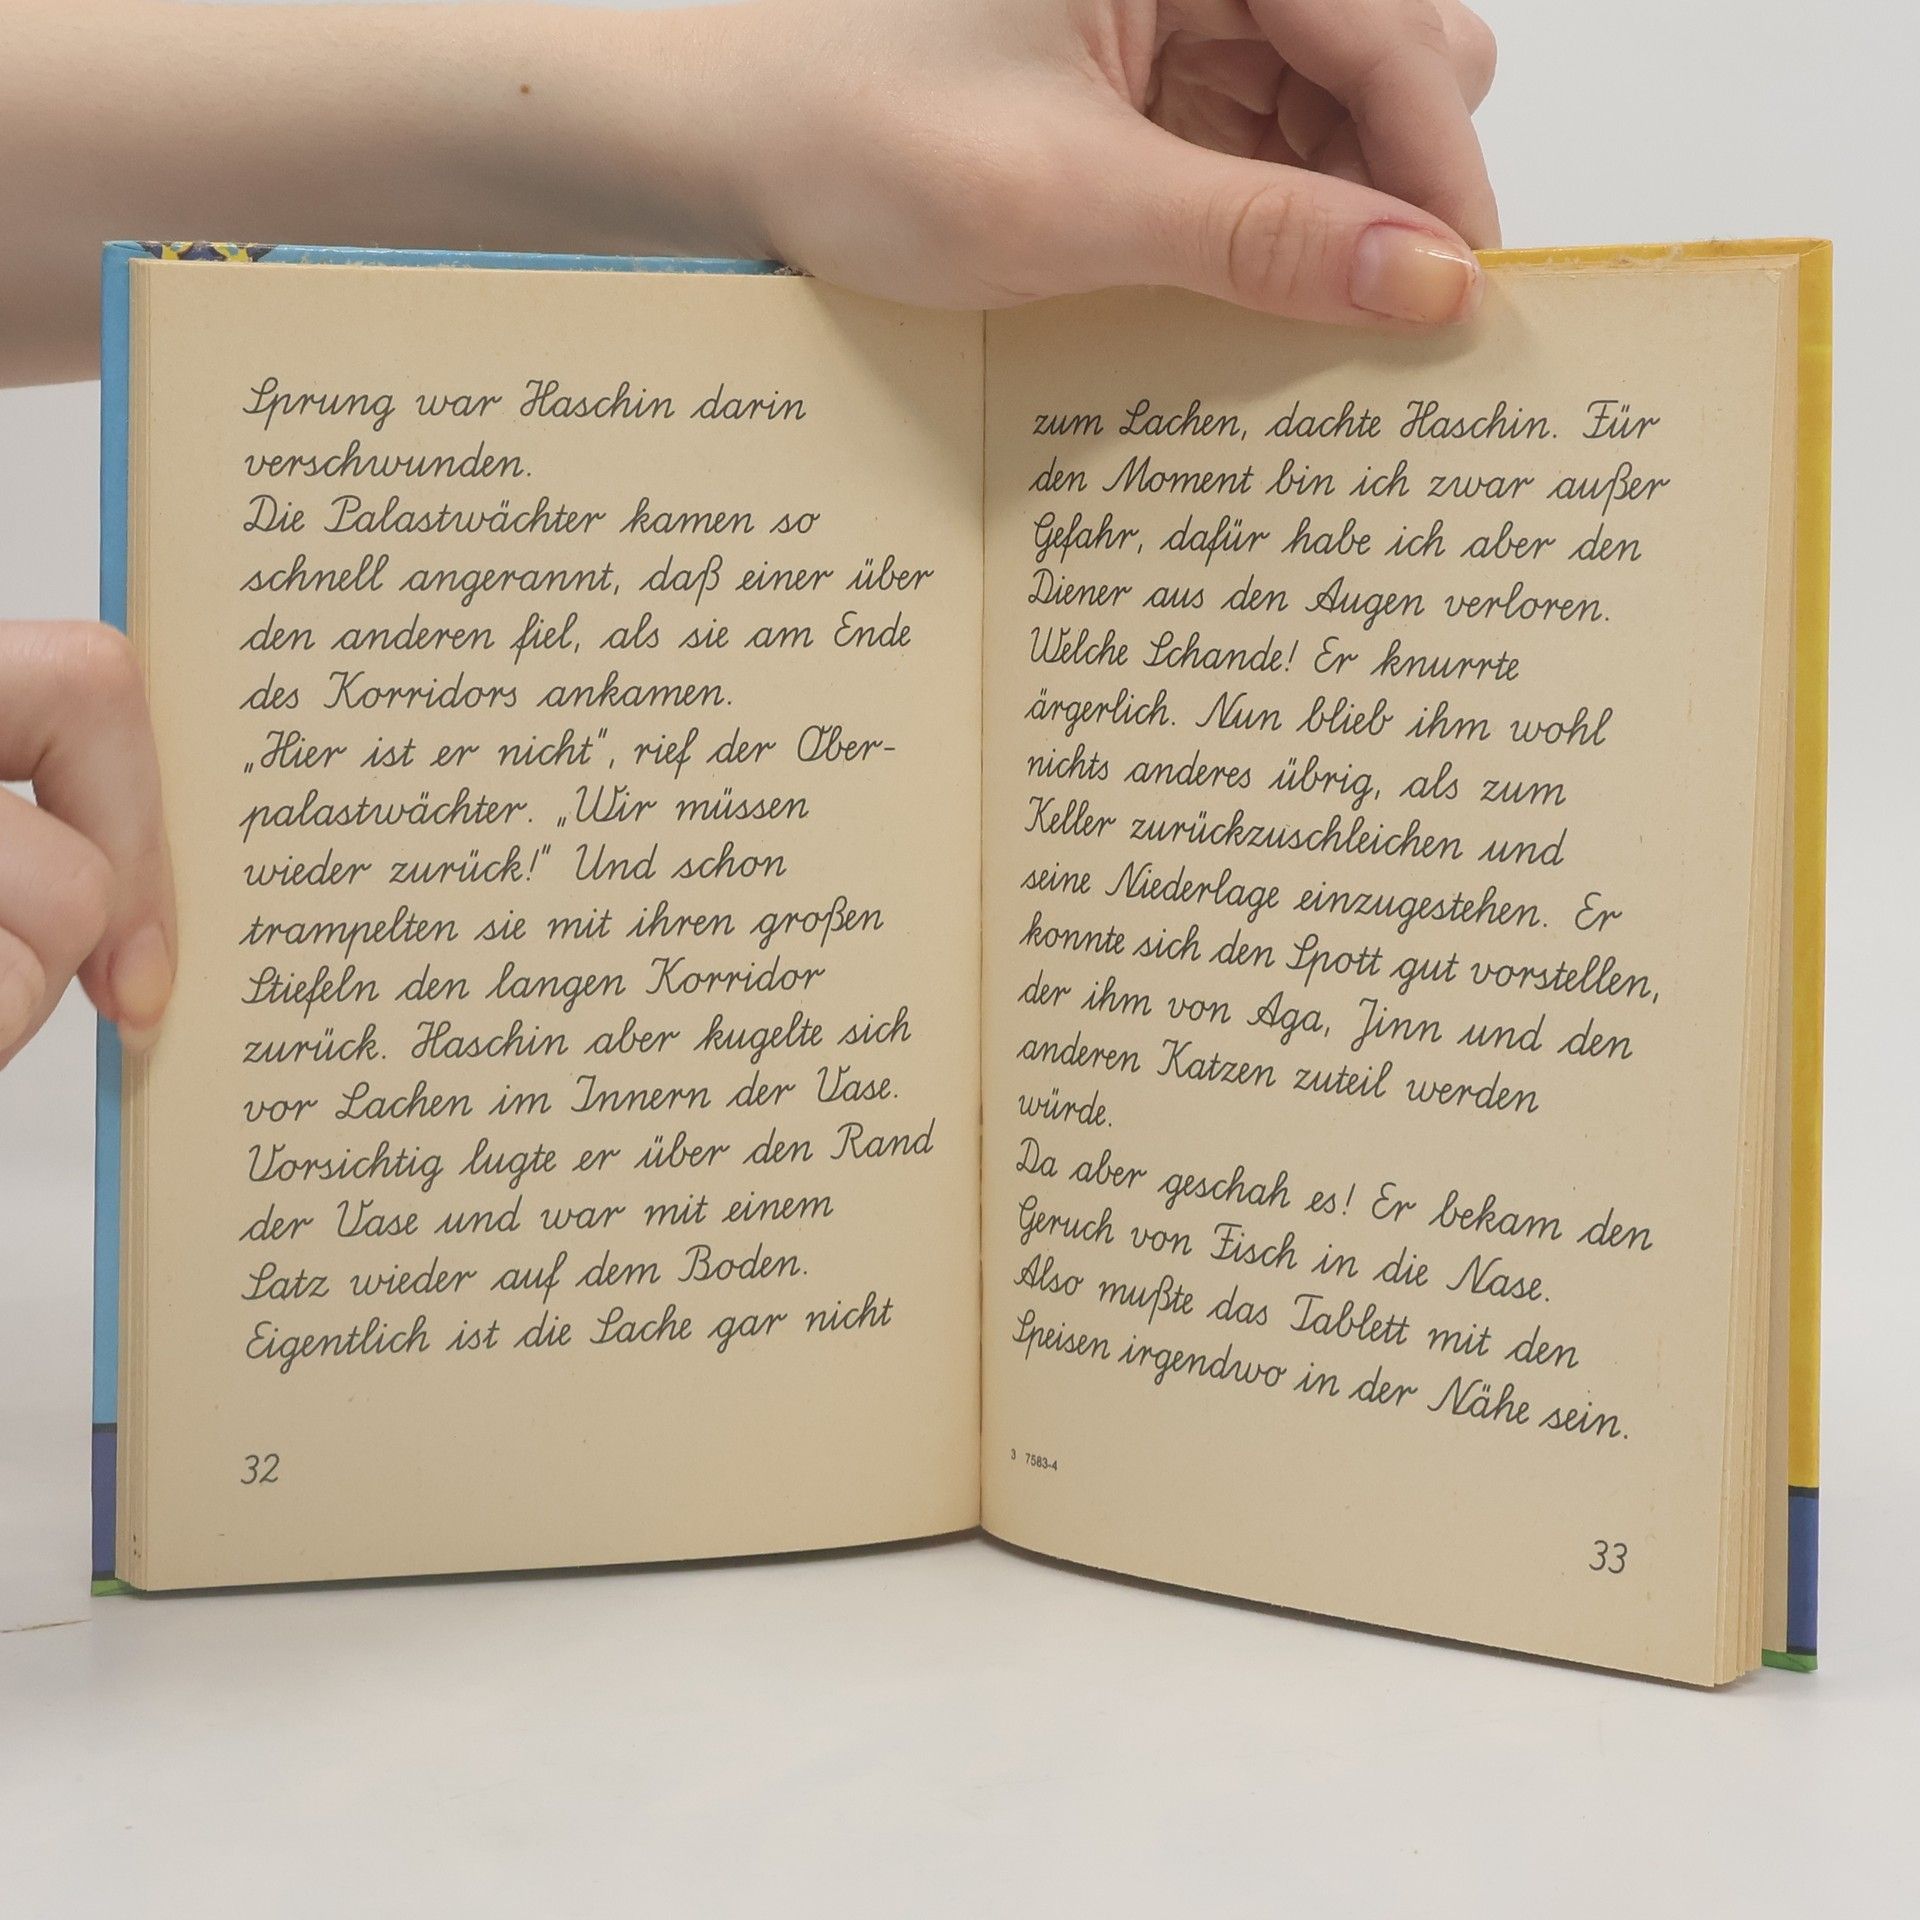 Sprung war Haschin darin
verschwunden.
Die Palastwächter kamen so
schnell angerannt, daß einer über
den anderen fiel, als sie am Ende
des Korridors ankamen.
„Hier ist er nicht", rief der Ober-
palastwächter. „Wir müssen
wieder zurück!" Und schon
trampelten sie mit ihren großen
Stiefeln den langen Korridor
zurück. Haschin aber kugelte sich
vor Lachen im Innern der Vase.
Vorsichtig lugte er über den Rand
der Vase und war mit einem
Satz wieder auf dem Boden.
Eigentlich ist die Sache gar nicht
32
zum Lachen, dachte Haschin. Für
den Moment bin ich zwar außer
Gefahr, dafür habe ich aber den
Diener aus den Augen verloren.
Welche Schande! Er knurrte
ärgerlich. Nun blieb ihm wohl
nichts anderes übrig, als zum
Keller zurückzuschleichen und
seine Niederlage einzugestehen. Er
konnte sich den Spott gut vorstellen,
der ihm von Aga, Jinn und den
anderen Katzen zuteil werden
würde.
Da aber geschah es! Er bekam den
Geruch von Fisch in die Nase.
Also mußte das Tablett mit den
Speisen irgendwo in der Nähe sein.
3 7583-4
33